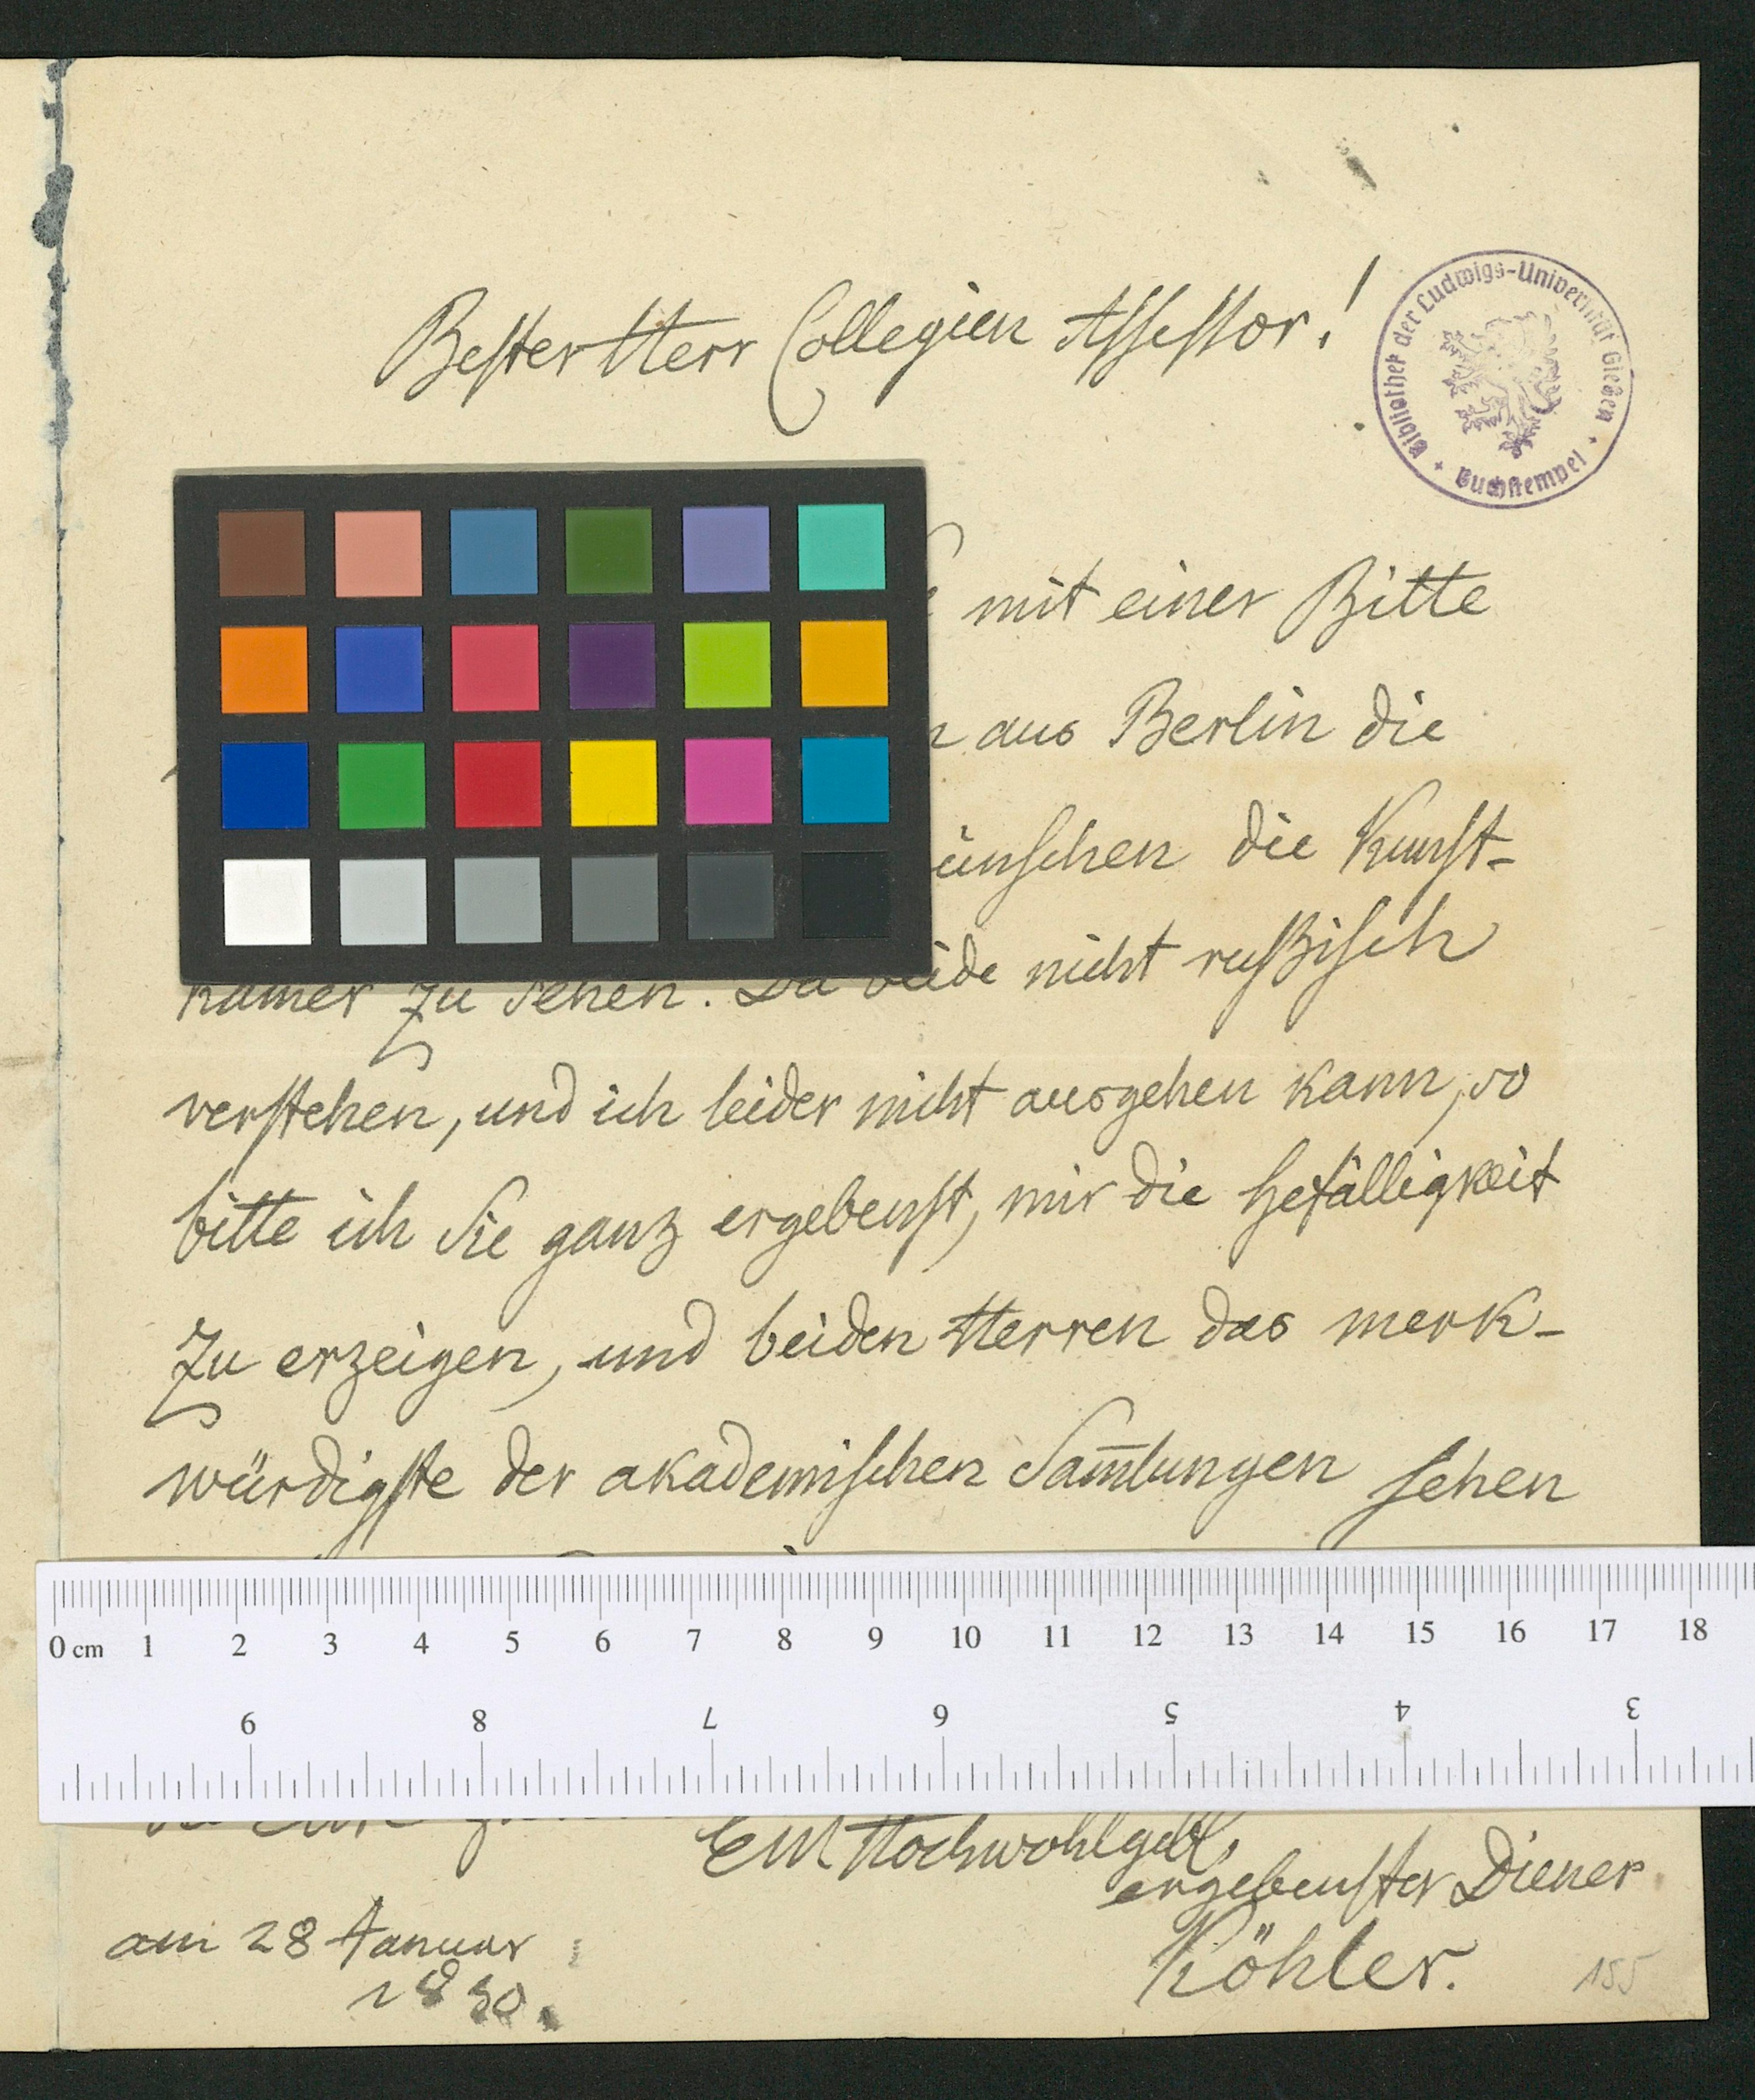 Bester Herr Collegien Assessor!
Bibliothek der Ludwigs-Universität Gießen
+ Buchstempel +
mit einer Bitte
aus Berlin die
ünschen die Kunst-
kamer zu sehen. Da beide nicht rußisch
verstehen, und ich leider nicht ausgehen kann, so
bitte ich Sie ganz ergebenst, mir die Gefälligkeit
zu erzeigen, und beiden Herren das merk-
würdigste der akademischen Sam̅lungen sehen
0 cm 1 2 3 4 5 6 7 8 9 10 11 12 13 14 15 16 17 18
9 8 7 6 5 4 3
Ew Hochwohlgeb,
ergebenster Diener
Köhler.
am 28 Januar
1830.
155